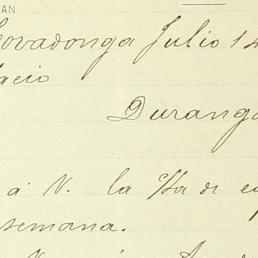 AN
Covadonga Julio 14
lacio
Durango
á V. la Ha de
semana.